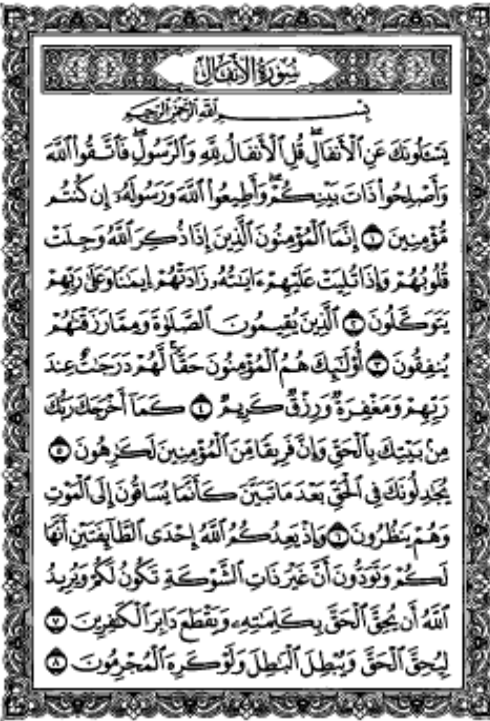 سُورَةُ الأَنفَالِ
بِسْمِ اللَّهِ الرَّحْمَٰنِ الرَّحِيمِ
يَسْـَٔلُونَكَ عَنِ ٱلْأَنفَالِ ۖ قُلِ ٱلْأَنفَالُ لِلَّهِ وَٱلرَّسُولِ ۖ فَٱتَّقُوا۟ ٱللَّهَ
وَأَصْلِحُوا۟ ذَاتَ بَيْنِكُمْ ۖ وَأَطِيعُوا۟ ٱللَّهَ وَرَسُولَهُۥٓ إِن كُنتُم
مُّؤْمِنِينَ ١ إِنَّمَا ٱلْمُؤْمِنُونَ ٱلَّذِينَ إِذَا ذُكِرَ ٱللَّهُ وَجِلَتْ
قُلُوبُهُمْ وَإِذَا تُلِيَتْ عَلَيْهِمْ ءَايَٰتُهُۥ زَادَتْهُمْ إِيمَٰنًا وَعَلَىٰ رَبِّهِمْ
يَتَوَكَّلُونَ ٢ ٱلَّذِينَ يُقِيمُونَ ٱلصَّلَوٰةَ وَمِمَّا رَزَقْنَٰهُمْ
يُنفِقُونَ ٣ أُو۟لَٰٓئِكَ هُمُ ٱلْمُؤْمِنُونَ حَقًّا ۚ لَّهُمْ دَرَجَٰتٌ عِندَ
رَبِّهِمْ وَمَغْفِرَةٌ وَرِزْقٌ كَرِيمٌ ٤ كَمَآ أَخْرَجَكَ رَبُّكَ
مِنۢ بَيْتِكَ بِٱلْحَقِّ وَإِنَّ فَرِيقًا مِّنَ ٱلْمُؤْمِنِينَ لَكَٰرِهُونَ ٥
يُجَٰدِلُونَكَ فِى ٱلْحَقِّ بَعْدَ مَا تَبَيَّنَ كَأَنَّمَا يُسَاقُونَ إِلَى ٱلْمَوْتِ
وَهُمْ يَنظُرُونَ ٦ وَإِذْ يَعِدُكُمُ ٱللَّهُ إِحْدَى ٱلطَّآئِفَتَيْنِ أَنَّهَا
لَكُمْ وَتَوَدُّونَ أَنَّ غَيْرَ ذَاتِ ٱلشَّوْكَةِ تَكُونُ لَكُمْ وَيُرِيدُ
ٱللَّهُ أَن يُحِقَّ ٱلْحَقَّ بِكَلِمَٰتِهِۦ وَيَقْطَعَ دَابِرَ ٱلْكَٰفِرِينَ ٧
لِيُحِقَّ ٱلْحَقَّ وَيُبْطِلَ ٱلْبَٰطِلَ وَلَوْ كَرِهَ ٱلْمُجْرِمُونَ ٨